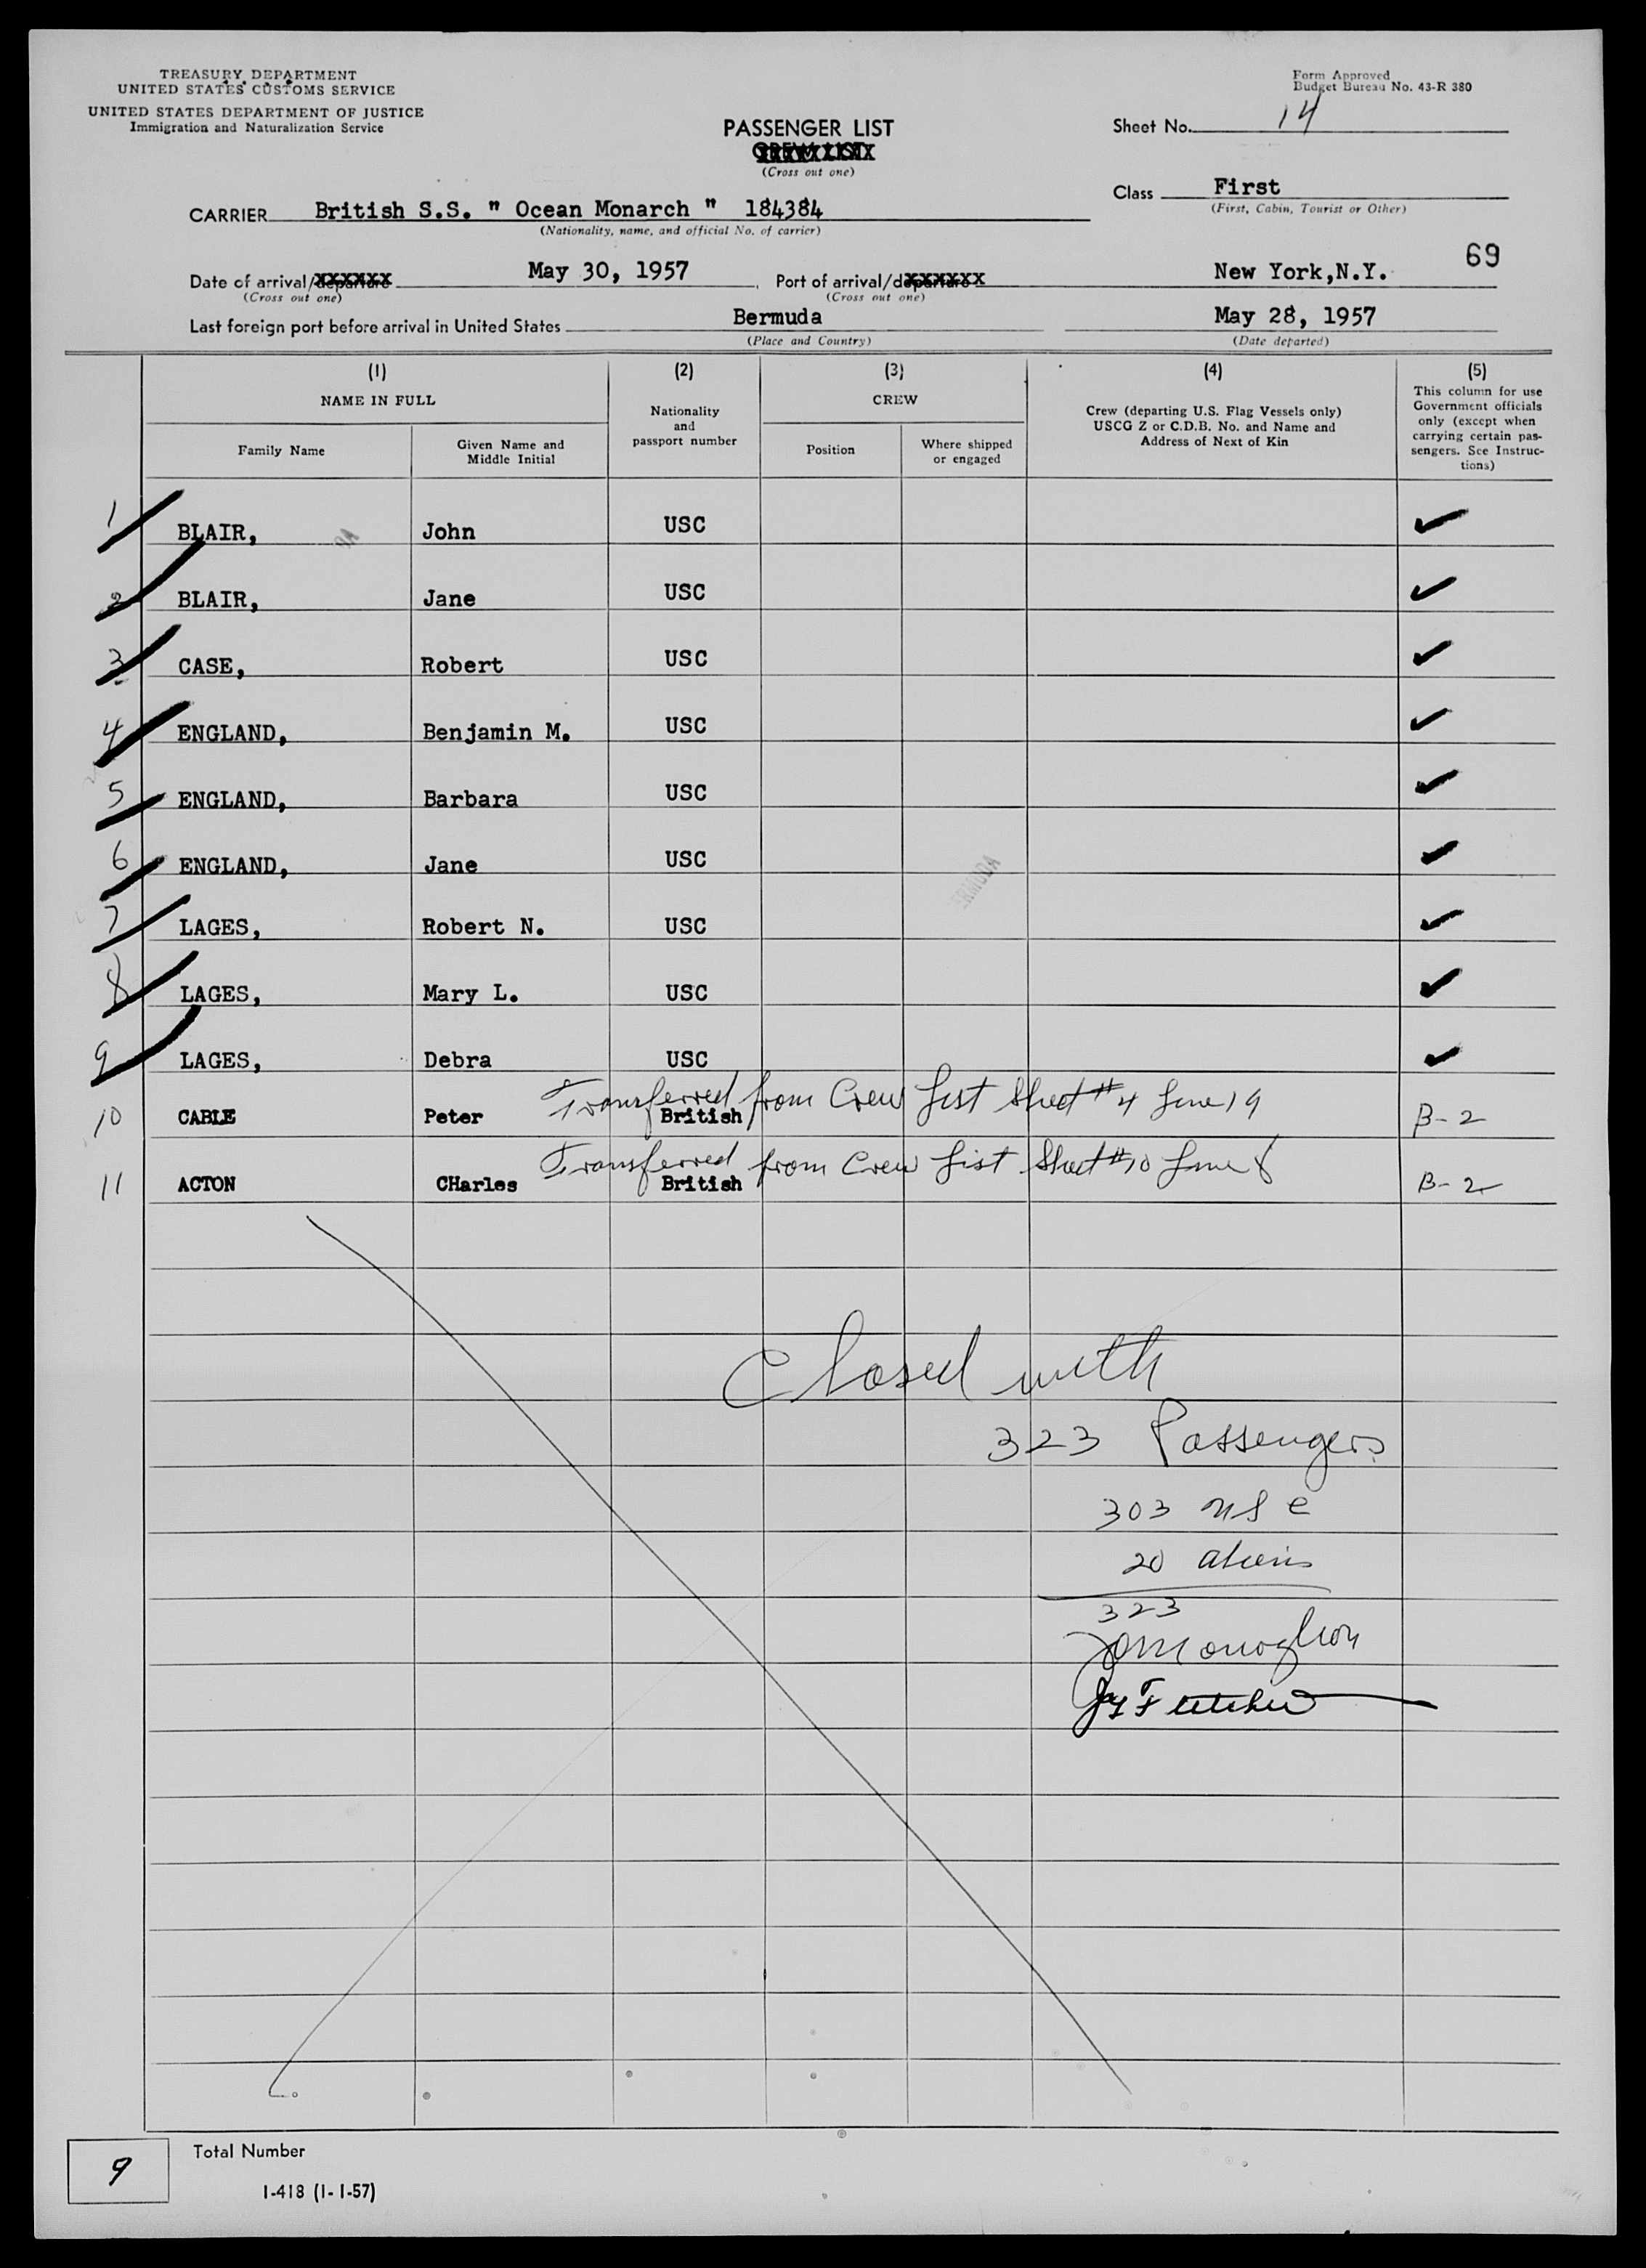 TREASURY DEPARTMENT
UNITED STATES CUSTOMS SERVICE
UNITED STATES DEPARTMENT OF JUSTICE
Immigration and Naturalization Service
Form Approved
Budget Bureau No. 43-R 380
Sheet No. 14
PASSENGER LIST
CREW LIST
(Cross out one)
Class First
(First, Cabin, Tourist or Other)
CARRIER British S.S. " Ocean Monarch " 184384
(Nationality, name, and official No. of carrier)
69
Date of arrival/departure May 30, 1957, Port of arrival/departure New York,N.Y.
(Cross out one) (Cross out one)
Last foreign port before arrival in United States Bermuda May 28, 1957
(Place and Country) (Date departed)
(1) (2) (3) (4) (5)
NAME IN FULL
Family Name
Given Name and
Middle Initial
Nationality
and
passport number
CREW
Position
Where shipped
or engaged
Crew (departing U.S. Flag Vessels only)
USCG Z or C.D.B. No. and Name and
Address of Next of Kin
This column for use
Government officials
only (except when
carrying certain pas-
sengers. See Instruc-
tions)
1 BLAIR, John USC ✓
2 BLAIR, Jane USC ✓
3 CASE, Robert USC ✓
4 ENGLAND, Benjamin M. USC ✓
5 ENGLAND, Barbara USC ✓
6 ENGLAND, Jane USC ✓
7 LAGES, Robert N. USC ✓
8 LAGES, Mary L. USC ✓
9 LAGES, Debra USC ✓
Transferred from Crew List Sheet #4 Line 19
10 CABLE Peter British B-2
Transferred from Crew List Sheet #10 Line 8
11 ACTON CHarles British B-2
Closed with
323 Passengers
303 USC
20 aliens
323
9 Total Number
I-418 (1-1-57)